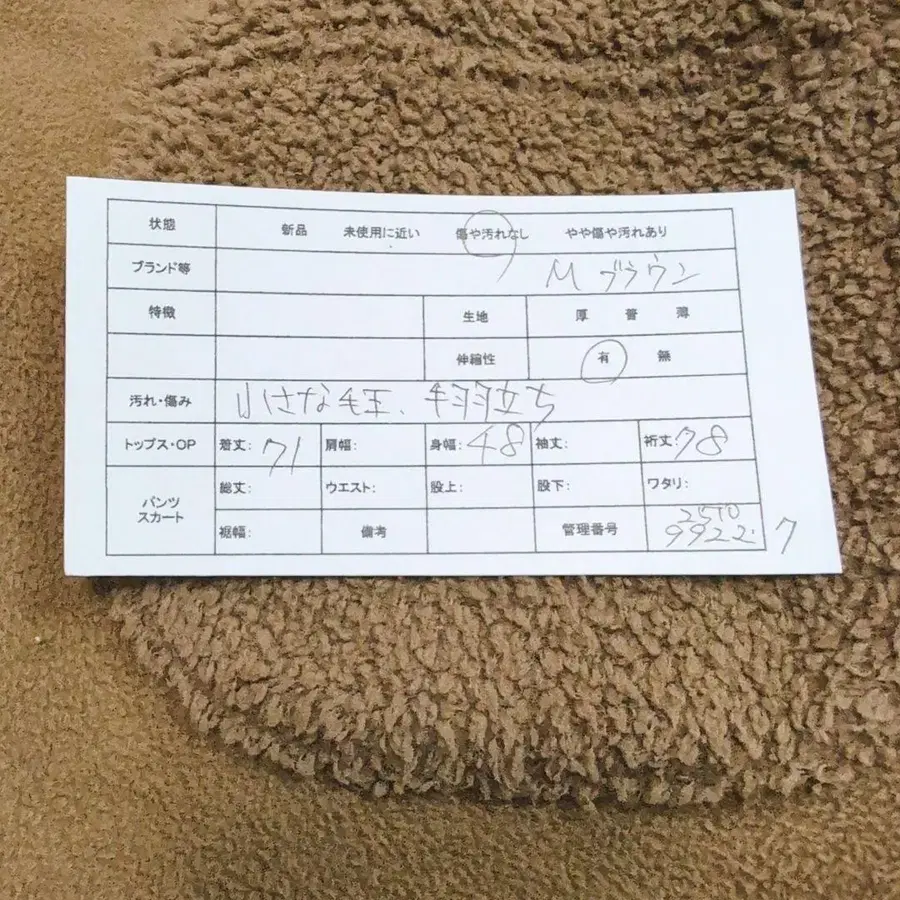 状態 新品 未使用に近い 傷や汚れなし やや傷や汚れあり
ブランド等 M ブラウン
特徴 生地 厚 普 薄
伸縮性 有 無
汚れ・傷み 小さな毛玉、毛羽立ち
トップス・OP 着丈: 71 肩幅: 身幅: 48 袖丈: 裄丈: 78
パンツ
スカート
総丈: ウエスト: 股上: 股下: ワタリ:
裾幅: 備考 管理番号 2510
9922 7